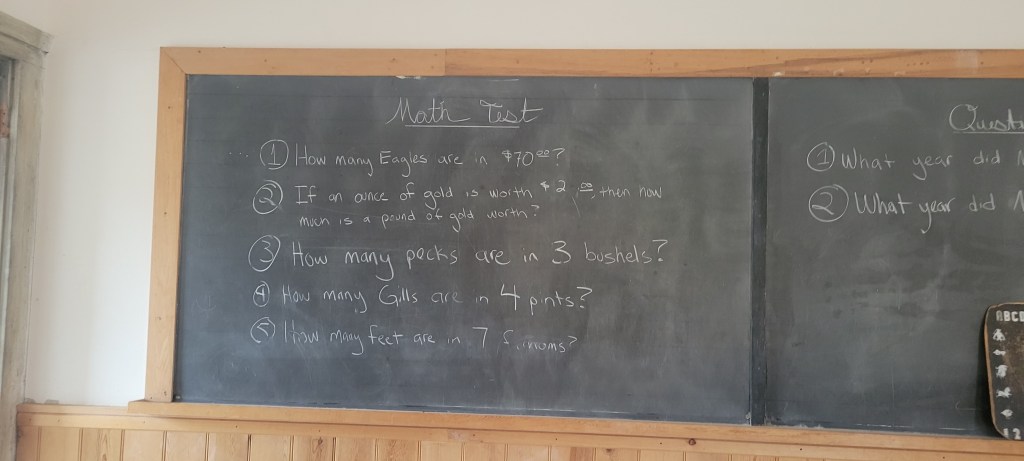 Math Test
① How many Eagles are in $70.00?
② If an ounce of gold is worth $2 .00, then how
much is a pound of gold worth?
③ How many pecks are in 3 bushels?
④ How many Gills are in 4 pints?
⑤ How many feet are in 7
① What year did
② What year did
ABCD
12